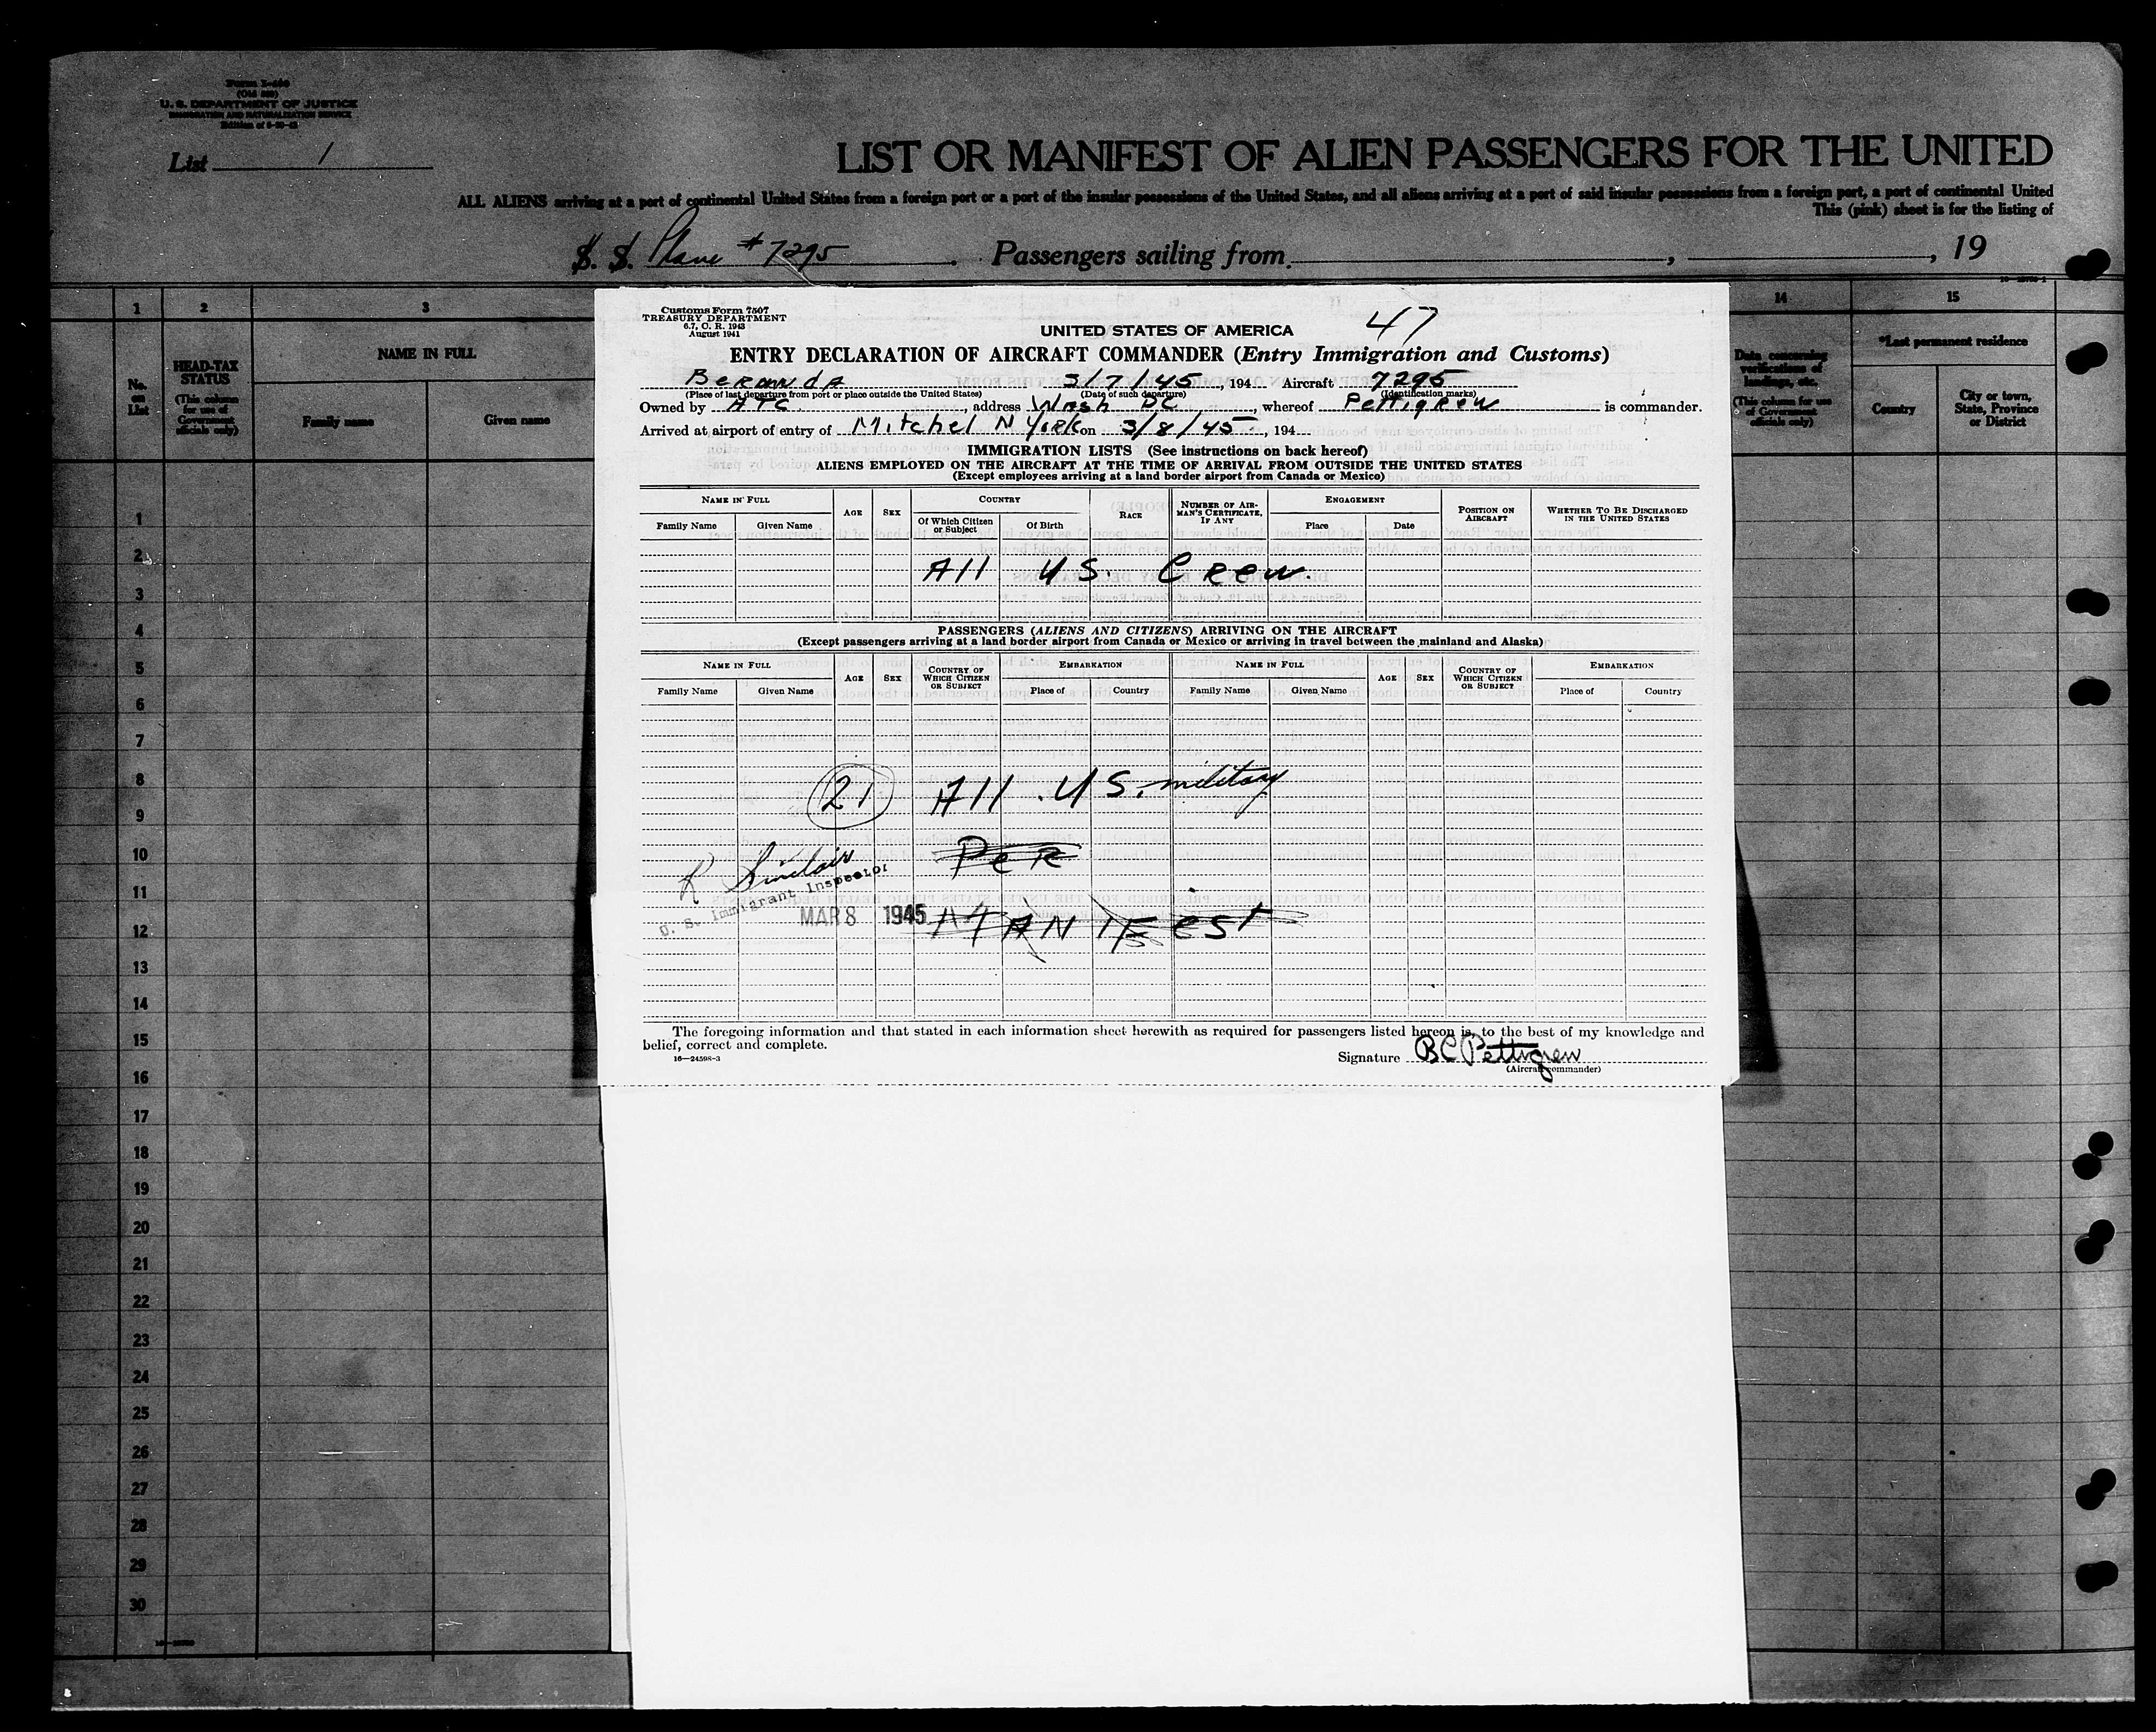 Form I-466
(Old 500)
U. S. DEPARTMENT OF JUSTICE
IMMIGRATION AND NATURALIZATION SERVICE
List 1
LIST OR MANIFEST OF ALIEN PASSENGERS FOR THE UNITED
ALL ALIENS arriving at a port of continental United States from a foreign port or a port of the insular possessions of the United States, and all aliens arriving at a port of said insular possessions from a foreign port, a port of continental United
This (pink) sheet is for the listing of
S. S. Plane # 7295 . Passengers sailing from , , 19
1 2 3 14 15
No. on List
HEAD-TAX STATUS
(This column for use of Government officials only)
NAME IN FULL
Family name Given name
Data concerning verifications of landings, etc.
(This column for use of Government officials only)
*Last permanent residence
Country City or town, State, Province or District
Customs Form 7507
TREASURY DEPARTMENT
6.7, C. R. 1943
August 1941
47
UNITED STATES OF AMERICA
ENTRY DECLARATION OF AIRCRAFT COMMANDER (Entry Immigration and Customs)
Bermuda 3/7/45, 194 Aircraft 7295
(Place of last departure from port or place outside the United States) (Date of such departure) (Identification marks)
Owned by ATC, address Wash DC, whereof Pettigrew is commander.
Arrived at airport of entry of Mitchel N York on 3/8/45, 194
IMMIGRATION LISTS (See instructions on back hereof)
ALIENS EMPLOYED ON THE AIRCRAFT AT THE TIME OF ARRIVAL FROM OUTSIDE THE UNITED STATES
(Except employees arriving at a land border airport from Canada or Mexico)
NAME IN FULL AGE SEX COUNTRY RACE NUMBER OF AIRMAN'S CERTIFICATE, IF ANY ENGAGEMENT POSITION ON AIRCRAFT WHETHER TO BE DISCHARGED IN THE UNITED STATES
Family Name Given Name Of Which Citizen or Subject Of Birth Place Date
All US. Crew.
PASSENGERS (ALIENS AND CITIZENS) ARRIVING ON THE AIRCRAFT
(Except passengers arriving at a land border airport from Canada or Mexico or arriving in travel between the mainland and Alaska)
NAME IN FULL AGE SEX COUNTRY OF WHICH CITIZEN OR SUBJECT EMBARKATION NAME IN FULL AGE SEX COUNTRY OF WHICH CITIZEN OR SUBJECT EMBARKATION
Family Name Given Name Place of Country Family Name Given Name Place of Country
21 All U S. military
Per
R Sinclair
U. S. Immigrant Inspector
MAR 8 1945
MANIFEST
The foregoing information and that stated in each information sheet herewith as required for passengers listed hereon is, to the best of my knowledge and
belief, correct and complete.
16—24598-3
Signature BC Pettigrew
(Aircraft commander)
1
2
3
4
5
6
7
8
9
10
11
12
13
14
15
16
17
18
19
20
21
22
23
24
25
26
27
28
29
30